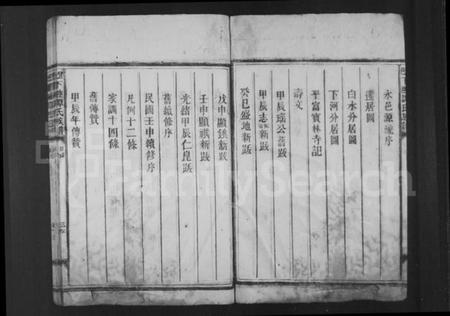 永邑源流序
遷居圖
白水分居圖
下河分居圖
平富寶林寺記
詩文
甲辰瑤公舊跋
甲辰志新跋
癸巳盛地新跋
戊申顯達新跋
壬申顯祺新跋
光緒甲辰仁崑跋
舊續修序
民國壬申續修序
凡例十二條
家訓十四條
舊傳贊
甲辰年傳贊
FamilySearch